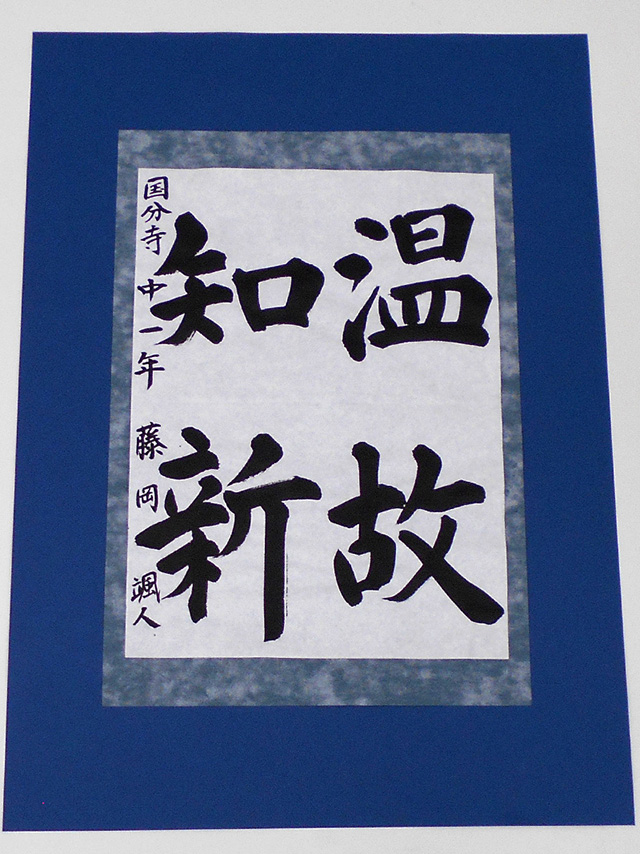 温故
知新
国分寺中一年 藤岡颯人